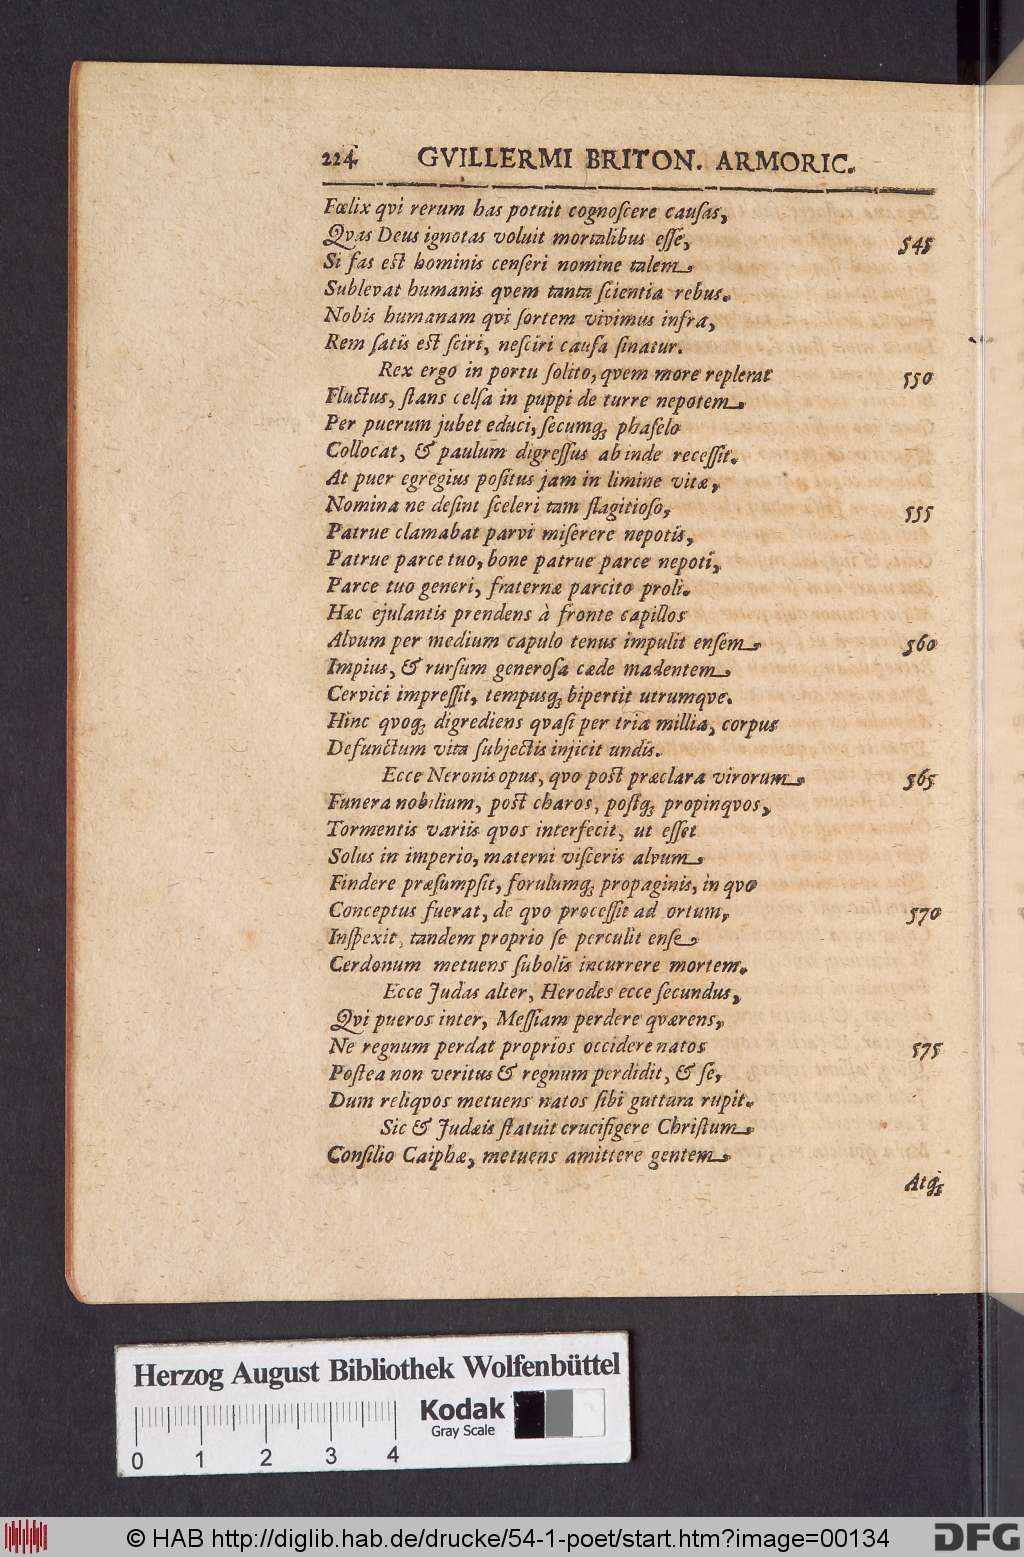 224 GVILLERMI BRITON. ARMORIC.
Fœlix qvi rerum has potuit cognoſcere cauſas,
Qvas Deus ignotas voluit mortalibus eſſe, 545
Si fas est hominis cenſeri nomine talem,
Sublevat humanis qvem tanta ſcientia rebus.
Nobis humanam qvi ſortem vivimus infra,
Rem ſatis est ſciri, neſciri cauſa ſinatur.
Rex ergo in portu ſolito, qvem more replerat 550
Fluctus, ſtans celſa in puppi de turre nepotem,
Per puerum jubet educi, ſecumq; phaſelo
Collocat, & paulum digreſſus abinde receſſit.
At puer egregius poſitus jam in limine vitæ,
Nomina ne deſint ſceleri tam flagitioſo, 555
Patrue clamabat parvi miſerere nepotis,
Patrue parce tuo, bone patrue parce nepoti,
Parce tuo generi, fraternæ parcito proli.
Hæc ejulantis prendens à fronte capillos
Alvum per medium capulo tenus impulit enſem, 560
Impius, & rurſum generoſa cæde madentem,
Cervici impreſſit, tempusq; bipertit utrumqve.
Hinc qvoq; digrediens qvaſi per tria millia, corpus
Defunctum vita ſubjectis injicit undis.
Ecce Neronis opus, qvo post præclara virorum, 565
Funera nobilium, post charos, poſtq; propinqvos,
Tormentis variis qvos interfecit, ut eſſet
Solus in imperio, materni viſceris alvum,
Findere præſumpſit, forulumq; propaginis, in qvo
Conceptus fuerat, de qvo proceſſit ad ortum, 570
Inſpexit, tandem proprio ſe perculit enſe,
Cerdonum metuens ſubolis incurrere mortem.
Ecce Judas alter, Herodes ecce ſecundus,
Qvi pueros inter, Meſſiam perdere qværens,
Ne regnum perdat proprios occidere natos 575
Poſtea non veritus & regnum perdidit, & ſe,
Dum reliqvos metuens natos ſibi guttura rupit.
Sic & Judæis ſtatuit crucifigere Chriſtum,
Conſilio Caiphæ, metuens amittere gentem,
Atq;
Herzog August Bibliothek Wolfenbüttel
Kodak
Gray Scale
0 1 2 3 4
© HAB http://diglib.hab.de/drucke/54-1-poet/start.htm?image=00134
DFG